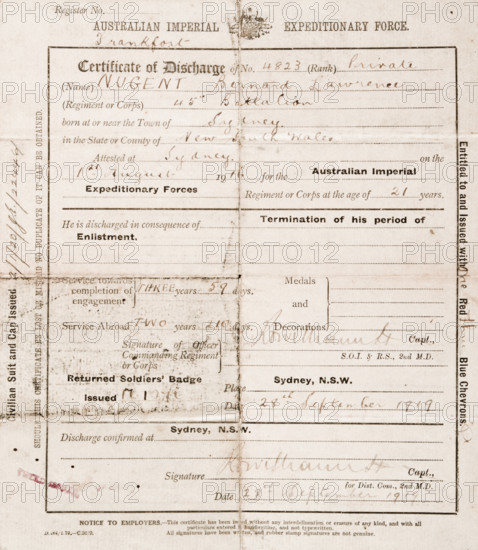 Register No.
AUSTRALIAN IMPERIAL EXPEDITIONARY FORCE.
Frankfort
Certificate of Discharge of No. 4823 (Rank) Private
(Name) NUGENT Bernard Lawrence
(Regiment or Corps) 45th Battalion
born at or near the Town of Sydney
in the State or County of New South Wales
Attested at Sydney on the
1st August 19 for the Australian Imperial
Expeditionary Forces Regiment or Corps at the age of 21 years.
He is discharged in consequence of Termination of his period of
Enlistment.
Service towards completion of engagement THREE years 59 days.
Service Abroad TWO years days.
Medals and Decorations
Signature of Officer Commanding Regiment or Corps
Capt.,
S.O.I. & R.S., 2nd M.D.
Returned Soldiers' Badge
Issued
Place Sydney, N.S.W.
Date 28th September 1919
Discharge confirmed at Sydney, N.S.W.
Signature
Capt.,
for Dist. Com., 2nd M.D.
Date 28th September 19
NOTICE TO EMPLOYERS.—This certificate has been issued without any interlineation or erasure of any kind, and with all
particulars entered in handwriting, and not typewritten.
All signatures have been written, and rubber stamp signatures are not genuine.
Civilian Suit and Cap Issued
SHOULD THIS CERTIFICATE BE LOST OR MISLAID NO DUPLICATE OF IT CAN BE OBTAINED.
Entitled to and Issued with One Red Blue Chevrons.
PHOTO 12